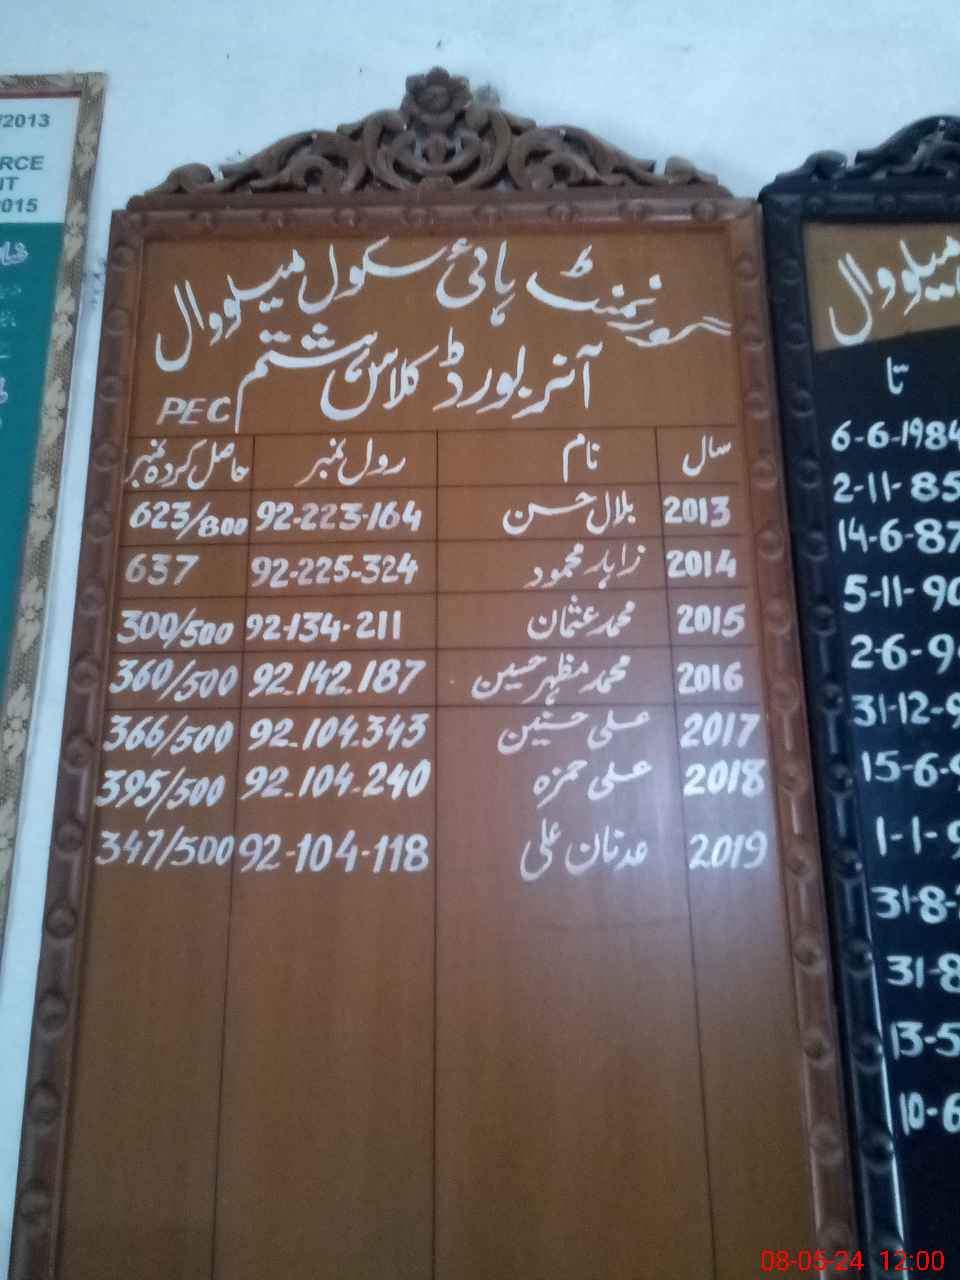 /2013
RCE
NT
2015
گورنمنٹ ہائی سکول میلووال
آنر بورڈ کلاس ہشتم PEC
سال نام رول نمبر حاصل کردہ نمبر
2013 بلال حسن 92-223-164 623/800
2014 زاہد محمود 92-225-324 637
2015 محمد عثمان 92-134-211 300/500
2016 محمد مظہر حسین 92-142-187 360/500
2017 علی حسنین 92-104-343 366/500
2018 علی حمزہ 92-104-240 395/500
2019 عدنان علی 92-104-118 347/500
میلووال
تا
6-6-1984
2-11-85
14-6-87
5-11-90
2-6-9
31-12-9
15-6-9
1-1-9
31-8-
31-8
13-5
10-6
08-05-24 12:00